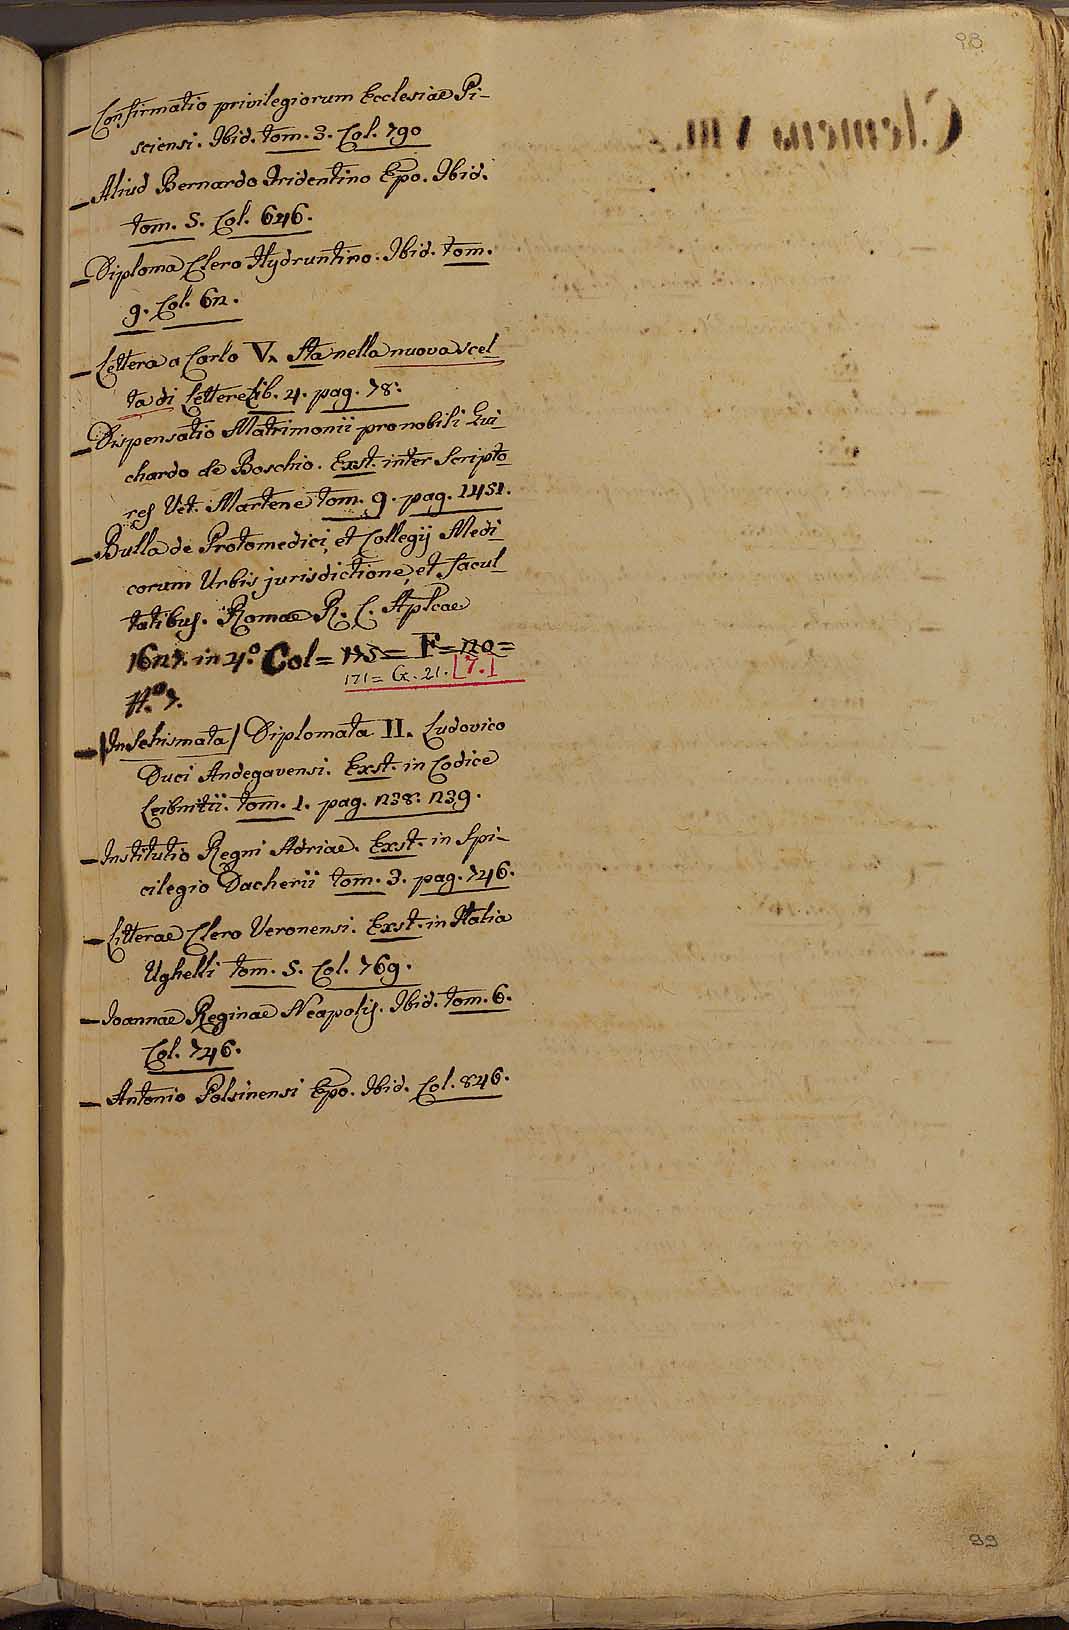 98
— Confirmatio privilegiorum Ecclesiae Pi-
sciensi. Ibid. tom. 3. Col. 790
— Aliud Bernardo Tridentino Epo. Ibid.
tom. 5. Col. 646.
— Diploma Clero Hydruntino. Ibid. tom.
9. Col. 62.
— Lettera a Carlo V. Sta nella nuova scel
ta di Lettere Lib. 4. pag. 78.
— Dispensatio Matrimonii pro nobili Gui
chardo de Boschio. Exst. inter Scripto
res Vet. Martene tom. 9. pag. 1451.
— Bulla de Protomedici, et Collegij Medi
corum Urbis jurisdictione, et facul
tatibus. Romae R. C. Aplcae
1627. in 4.º Col = 175 = F = 20 =
171 = G. 21. [7.]
N.º 7.
— /In Schismata/ Diplomata II. Ludovico
Duci Andegavensi. Exst. in Codice
Leibnitii. tom. 1. pag. 238. 239.
— Institutio Regni Adriae. Exst. in Spi-
cilegio Dacherii tom. 3. pag. 746.
— Litterae Clero Veronensi. Exst. in Italia
Ughelli tom. 5. Col. 769.
— Ioannae Reginae Neapolis. Ibid. tom. 6.
Col. 746.
— Antonio Polsinensi Epo. Ibid. Col. 846.
99